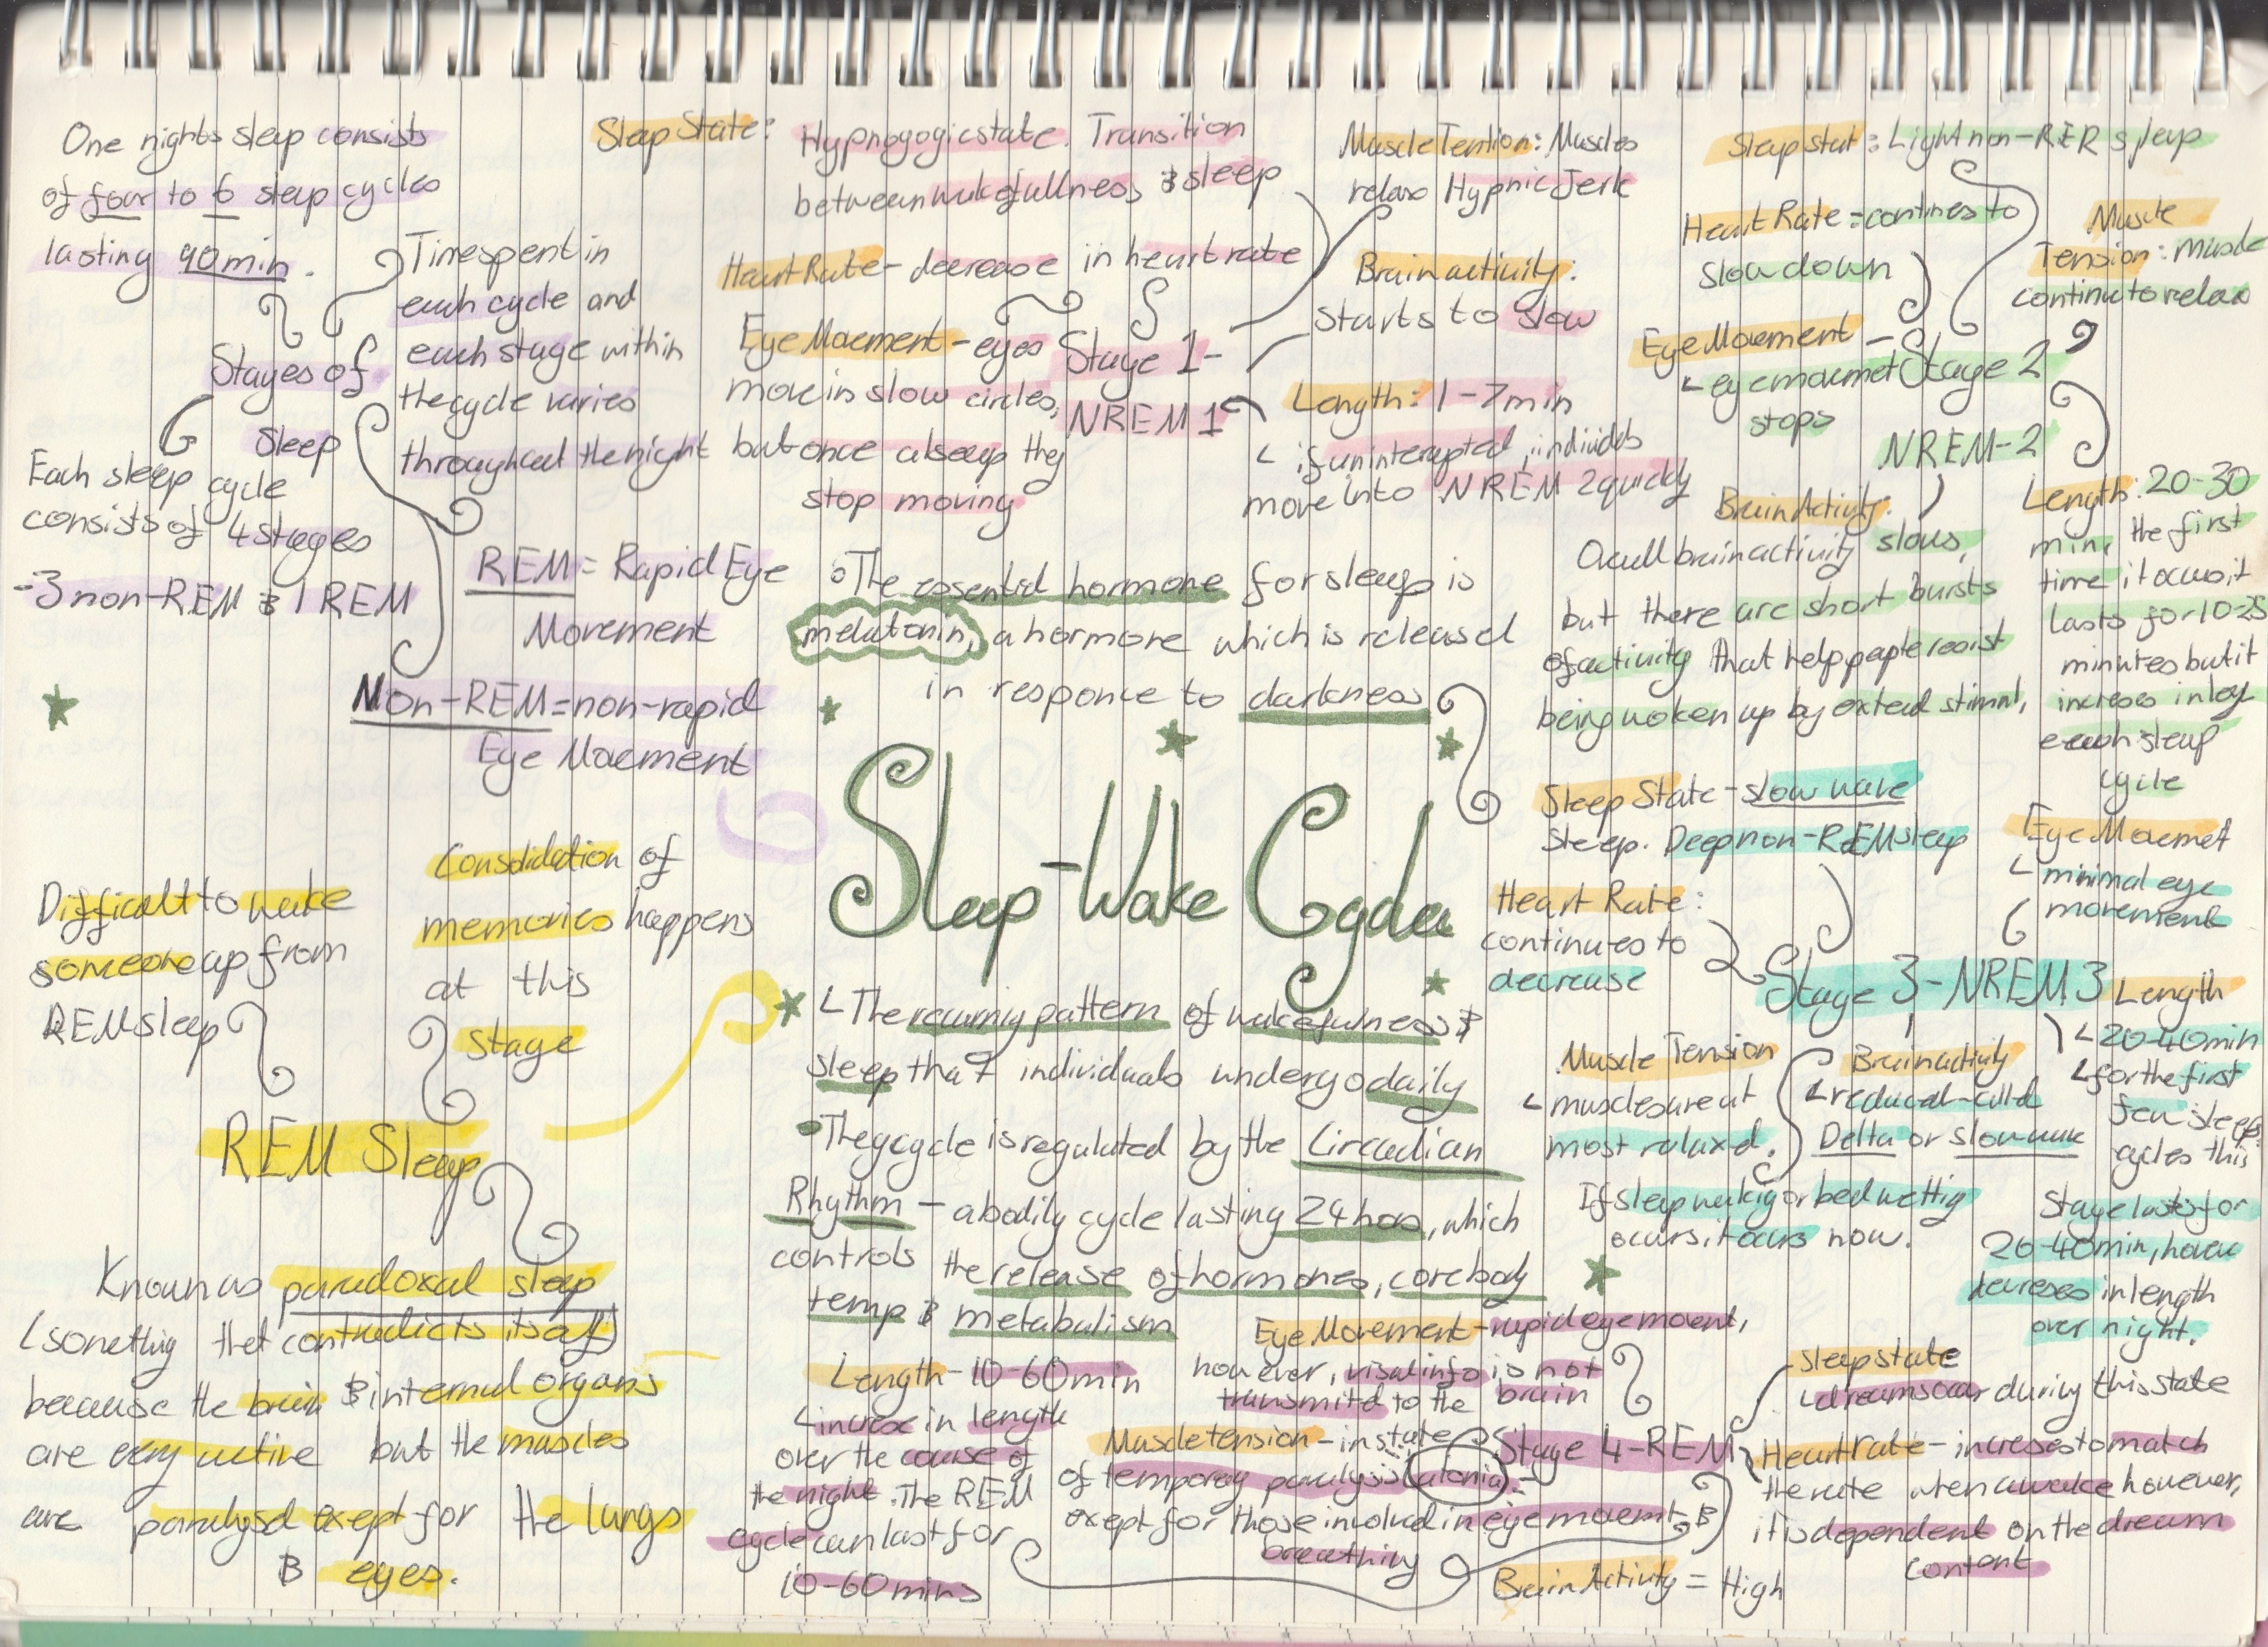 One nights sleep consists
of four to 6 sleep cycles
lasting 90min.
Stages of
Sleep
Time spent in
each cycle and
each stage within
the cycle varies
throughout the night
Each sleep cycle
consists of 4 stages
-3 non-REM & 1 REM
REM = Rapid Eye
Movement
Non-REM = non-rapid
Eye Movement
Sleep State: Hypnogogic state. Transition
between wakefullness & sleep
Heart Rate - decrease in heart rate
Eye Movement - eyes
move in slow circles,
but once alseep they
stop moving
Stage 1-
NREM 1
Muscle Tention: Muscles
relax Hypnic Jerk
Brain activity:
starts to slow
Length: 1-7min
if uninterupted, individuls
move into NREM 2 quickly
Sleep stat: Light non-RER sleep
Heart Rate = contines to
slow down
Muscle
Tension: muscle
continue to relax
Eye Movement
eye movemet
stops
Stage 2
NREM-2
Brain Activity:
Overall brain activity slows,
but there are short bursts
of activity that help people resist
being woken up by external stimuli,
Length: 20-30
min, the first
time it occurs it
lasts for 10-25
minutes but it
increses in leng
each sleep
cycle
• The essential hormone for sleep is
melatonin, a hormone which is released
in responce to darkness
Sleep-Wake Cycles
The recurring pattern of wakefulness &
sleep that individuals undergo daily
• The cycle is regulated by the Circadian
Rhythm - a bodily cycle lasting 24 hours, which
controls the release of hormones, core body
temp & metabolism
Sleep State - slow wave
sleep. Deep non-REM sleep
Heart Rate:
continues to
decrease
Eye Movemet
minimal eye
movement
Stage 3-NREM 3
Muscle Tension
muscles are at
most relaxed.
Brain activity
reduced - called
Delta or slow wave
If sleep walking or bed wetting
occurs, it ocurs now.
Length
20-40min
for the first
few sleep
cycles this
stage lasts for
20-40min, however
decreses in length
over night.
Difficult to wake
someone up from
REM sleep
Consolidation of
memories happens
at this
stage
REM Sleep
Known as paradoxal sleep
(something that contradicts itself)
because the brain & internal organs
are very active but the muscles
are paralysed exept for the lungs
& eyes.
Length - 10-60min
increse in length
over the course of
the night. The REM
cycle can last for
10-60 mins
Eye Movement - rapid eye movent,
however, visual info is not
transmited to the brain
Muscle tension - in state
of temporary paralysis (atonia) -
exept for those involved in eye movemt &
breathing
Stage 4-REM
Sleep state
dreams occur during this state
Heart rate - increses to match
the rate when awake however,
it is dependent on the dream
content
Brain Activity = High